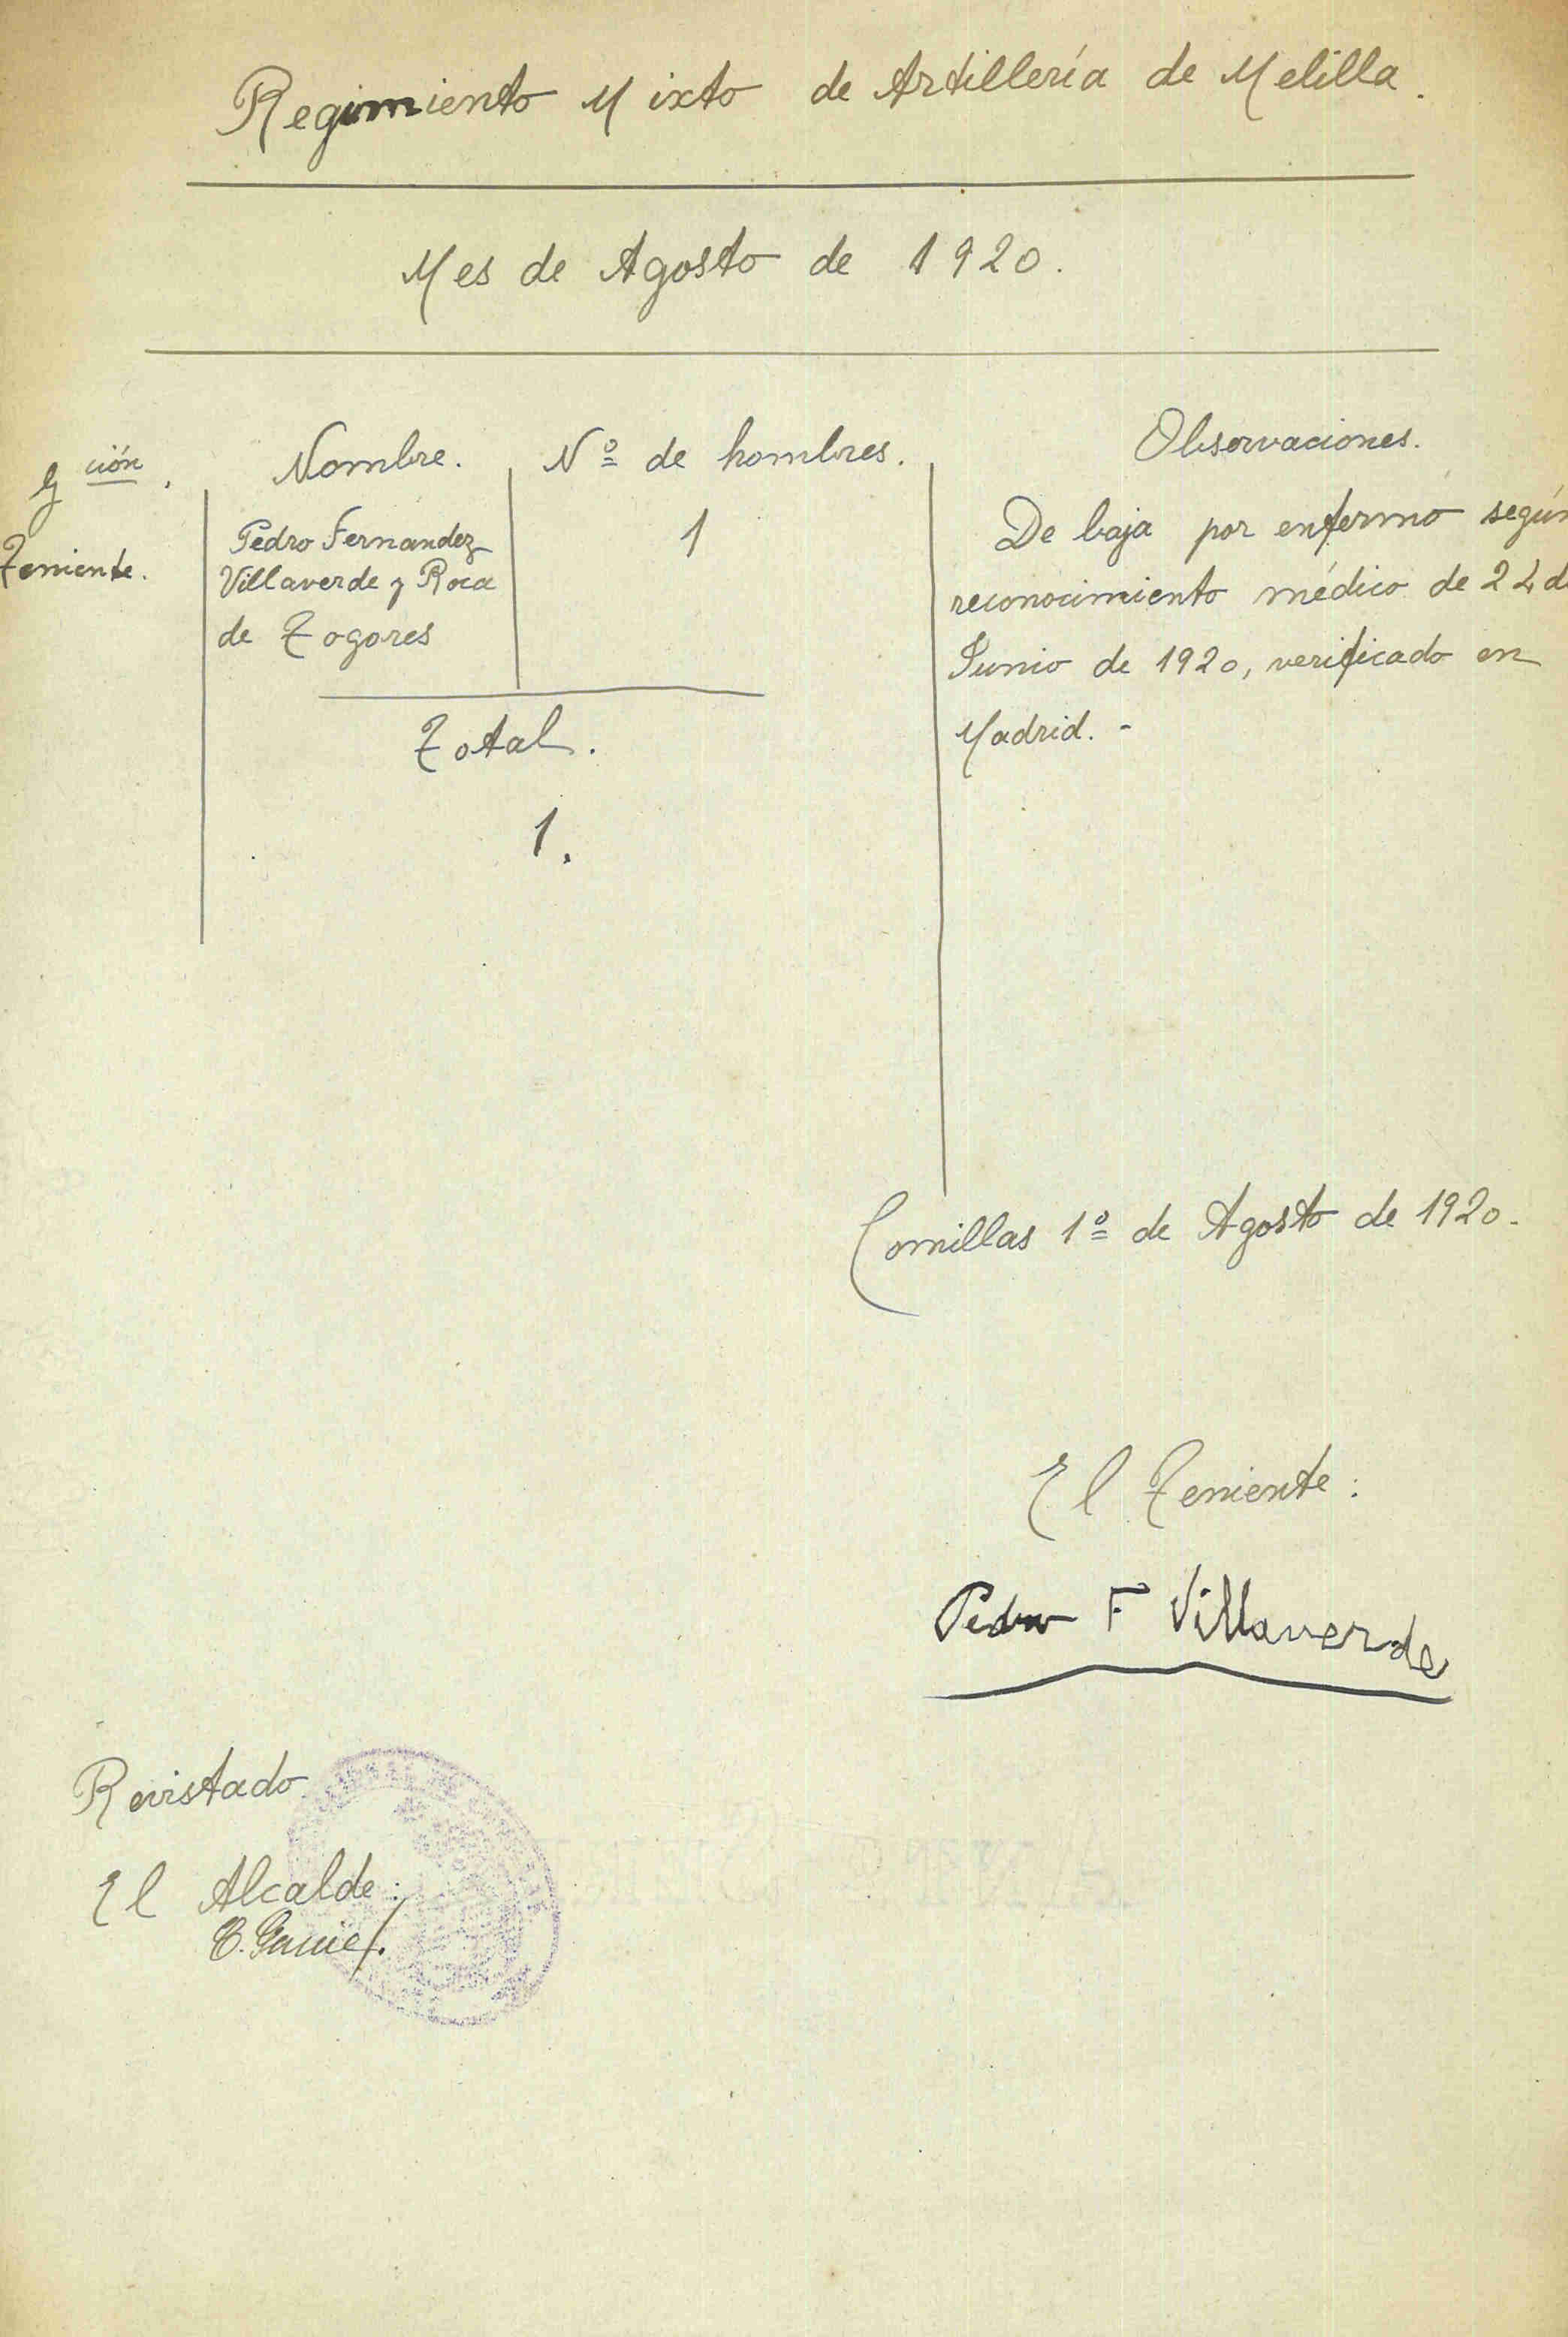 Regimiento Mixto de Artillería de Melilla.
Mes de Agosto de 1920.
ción. Nombre. Nº de hombres. Observaciones.
Teniente.
Pedro Fernandez
Villaverde y Roca
de Togores
1
De baja por enfermo según
reconocimiento médico de 22 d
Junio de 1920, verificado en
Madrid. -
Total.
1.
Comillas 1º de Agosto de 1920.
El Teniente:
Pedro F Villaverde
Revistado
El Alcalde: